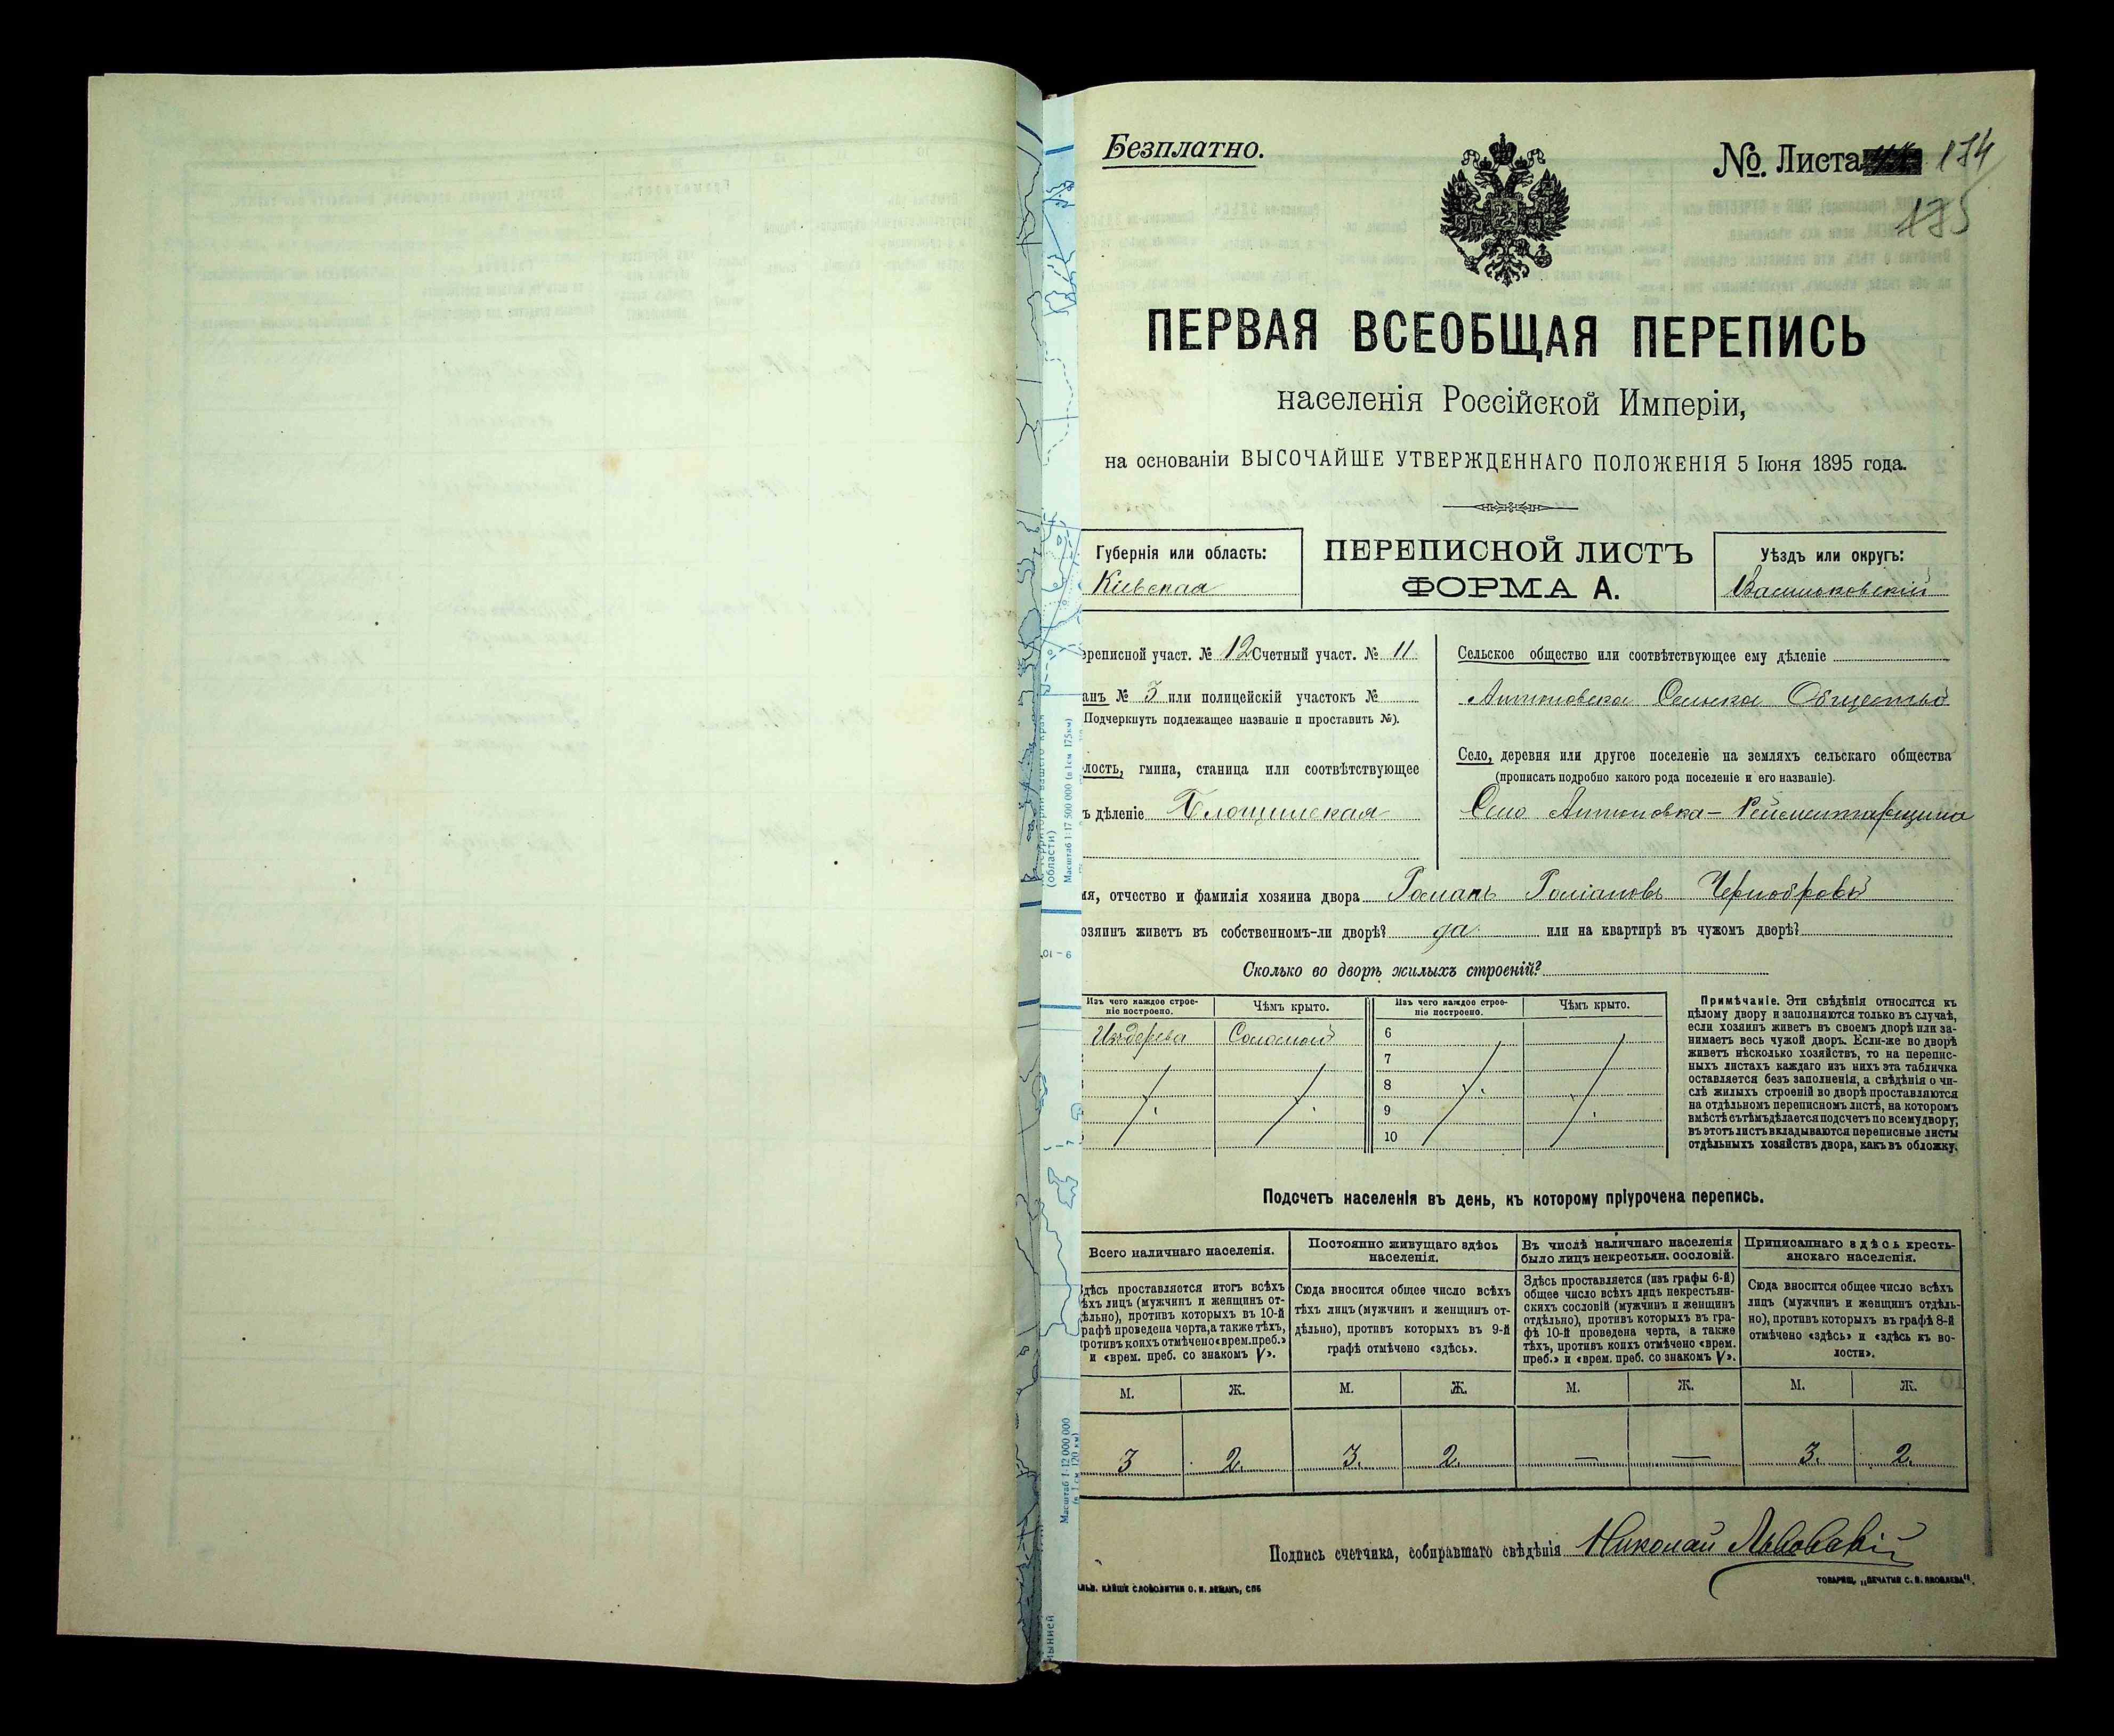 Безплатно.
№. Листа 174
175
ПЕРВАЯ ВСЕОБЩАЯ ПЕРЕПИСЬ
населенія Россійской Имперіи,
на основаніи ВЫСОЧАЙШЕ УТВЕРЖДЕННАГО ПОЛОЖЕНІЯ 5 Іюня 1895 года.
Губернія или область:
Кіевская
ПЕРЕПИСНОЙ ЛИСТЪ
ФОРМА А.
Уѣздъ или округъ:
Васильковскій
ереписной участ. № 12 Счетный участ. № 11
анъ № 3 или полицейскій участокъ №
Подчеркнуть подлежащее названіе и проставить №).
лость, гмина, станица или соотвѣтствующее
ъ дѣленіе
Сельское общество или соотвѣтствующее ему дѣленіе
Антоновска Сельска Общество
Село, деревня или другое поселеніе на земляхъ сельскаго общества
(прописать подробно какого рода поселеніе и его названіе).
Село Антоновка – Рейментарщина
мя, отчество и фамилія хозяина двора Романъ Романовъ Чернобровъ
озяинъ живетъ въ собственномъ-ли дворѣ? да или на квартирѣ въ чужомъ дворѣ?
Сколько во дворѣ жилыхъ строеній?
Изъ чего каждое строе-
ніе построено.
Чѣмъ крыто.
Изъ чего каждое строе-
ніе построено.
Чѣмъ крыто.
Изъ дерева Соломой
6
7
8
9
10
Примѣчаніе. Эти свѣдѣнія относятся къ
цѣлому двору и заполняются только въ случаѣ,
если хозяинъ живетъ въ своемъ дворѣ или за-
нимаетъ весь чужой дворъ. Если-же во дворѣ
живетъ нѣсколько хозяйствъ, то на перепис-
ныхъ листахъ каждаго изъ нихъ эта табличка
оставляется безъ заполненія, а свѣдѣнія о чи-
слѣ жилыхъ строеній во дворѣ проставляются
на отдѣльномъ переписномъ листѣ, на которомъ
вмѣстѣ съ тѣмъ дѣлается подсчетъ по всему двору;
въ этотъ листъ вкладываются переписные листы
отдѣльныхъ хозяйствъ двора, какъ въ обложку.
Подсчетъ населенія въ день, къ которому пріурочена перепись.
Всего наличнаго населенія.
Постоянно живущаго здѣсь
населенія.
Въ числѣ наличнаго населенія
было лицъ некрестьян. сословій.
Приписаннаго здѣсь кресть-
янскаго населенія.
Здѣсь проставляется итогъ всѣхъ
ѣхъ лицъ (мужчинъ и женщинъ от-
ѣльно), противъ которыхъ въ 10-й
рафѣ проведена черта, а также тѣхъ,
ротивъ коихъ отмѣчено «врем. преб.»
и «врем. преб. со знакомъ V».
Сюда вносится общее число всѣхъ
тѣхъ лицъ (мужчинъ и женщинъ от-
дѣльно), противъ которыхъ въ 9-й
графѣ отмѣчено «здѣсь».
Здѣсь проставляется (изъ графы 6-й)
общее число всѣхъ лицъ некрестьян-
скихъ сословій (мужчинъ и женщинъ
отдѣльно), противъ которыхъ въ гра-
фѣ 10-й проведена черта, а также
тѣхъ, противъ коихъ отмѣчено «врем.
преб.» и «врем. преб. со знакомъ V».
Сюда вносится общее число всѣхъ
лицъ (мужчинъ и женщинъ отдѣль-
но), противъ которыхъ въ графѣ 8-й
отмѣчено «здѣсь» и «здѣсь къ во-
лости».
М. Ж. М. Ж. М. Ж. М. Ж.
3 2. 3. 2. — — 3. 2.
Подпись счетчика, собиравшаго свѣдѣнія Николай Львовскій
СЛОВОЛИТНИ О. И. ЛЕМАНЪ, СПБ
ТОВАРИЩ. „ПЕЧАТНЯ С. П. ЯКОВЛЕВА".
(области)
Масштаб 1:17 500 000 (в 1 см 175 км)
9 – 10
Масштаб 1:12 000 000
(в 1 см 120 км)